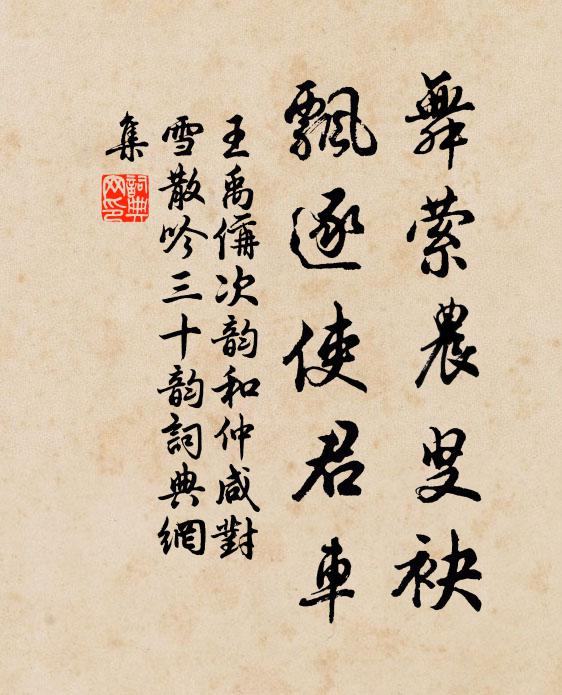 舞萦農叟袂
飄逐使君車
王禹偁次韵和仲咸對
雪散吟三十韵詞典網
集
詞典网印